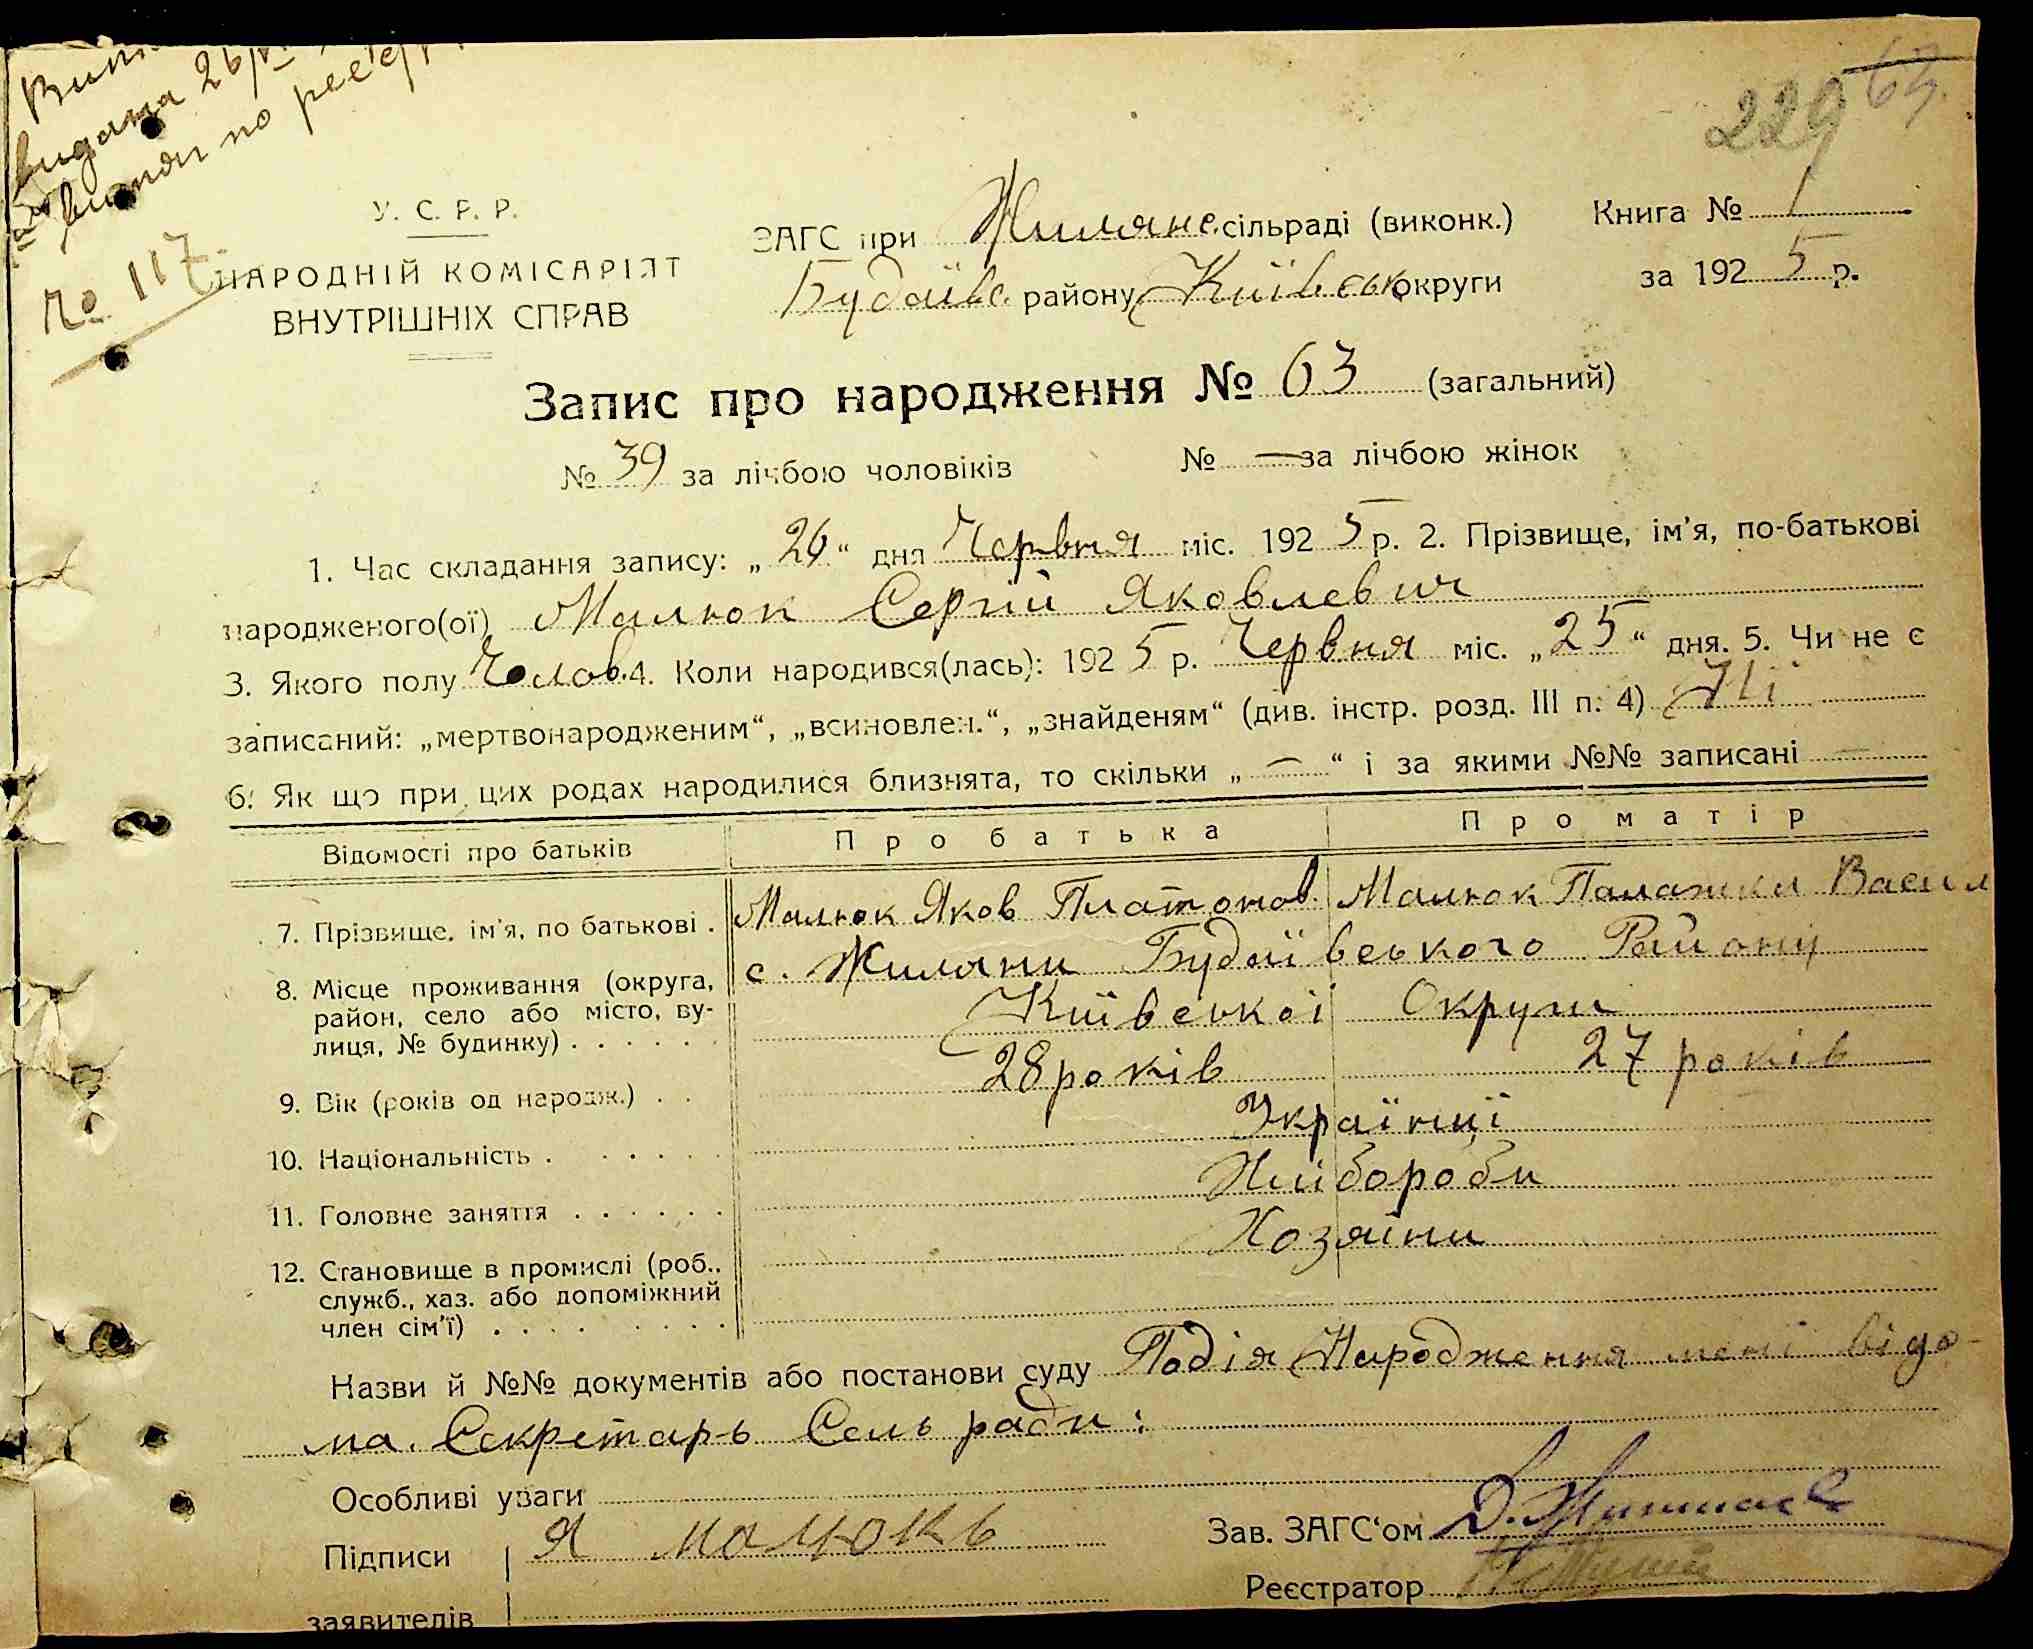 видана 26
витяги по реєстр
№ 117
229 63
У. С. Р. Р.
НАРОДНІЙ КОМІСАРІЯТ
ВНУТРІШНІХ СПРАВ
ЗАГС при Жилянс. сільраді (виконк.) Книга № 1
Будаївс. району Київськ округи за 1925 р.
Запис про народження № 63 (загальний)
№ 39 за лічбою чоловіків № — за лічбою жінок
1. Час складання запису: „26“ дня Червня міс. 1925 р. 2. Прізвище, ім'я, по-батькові
народженого(ої) Малюк Сергій Яковлевич
3. Якого полу Чолов. 4. Коли народився(лась): 1925 р. Червня міс. „25“ дня. 5. Чи не є
записаний: „мертвонародженим“, „всиновлен.“, „знайденям“ (див. інстр. розд. III п. 4) Ні
6. Як що при цих родах народилися близнята, то скільки „—“ і за якими №№ записані —
Відомості про батьків Про батька Про матір
7. Прізвище, ім'я, по батькові . Малюк Яков Платонов. Малюк Палажка Васил
8. Місце проживання (округа, с. Жиляни Будаївського Району
район, село або місто, ву-
лиця, № будинку) . . . . . . Київської Округи
9. Вік (років од народж.) . . 28 років 27 років
10. Національність . . . . . . Українці
11. Головне заняття . . . . . . Хлібороби
12. Становище в промислі (роб., Хозяїни
служб., хаз. або допоміжний
член сім'ї) . . . . . . . .
Назви й №№ документів або постанови суду Подія Народження мені відо-
ма. Секретарь Сель ради:
Особливі уваги
Підписи Я малюкь Зав. ЗАГС‘ом
Реєстратор
заявителів